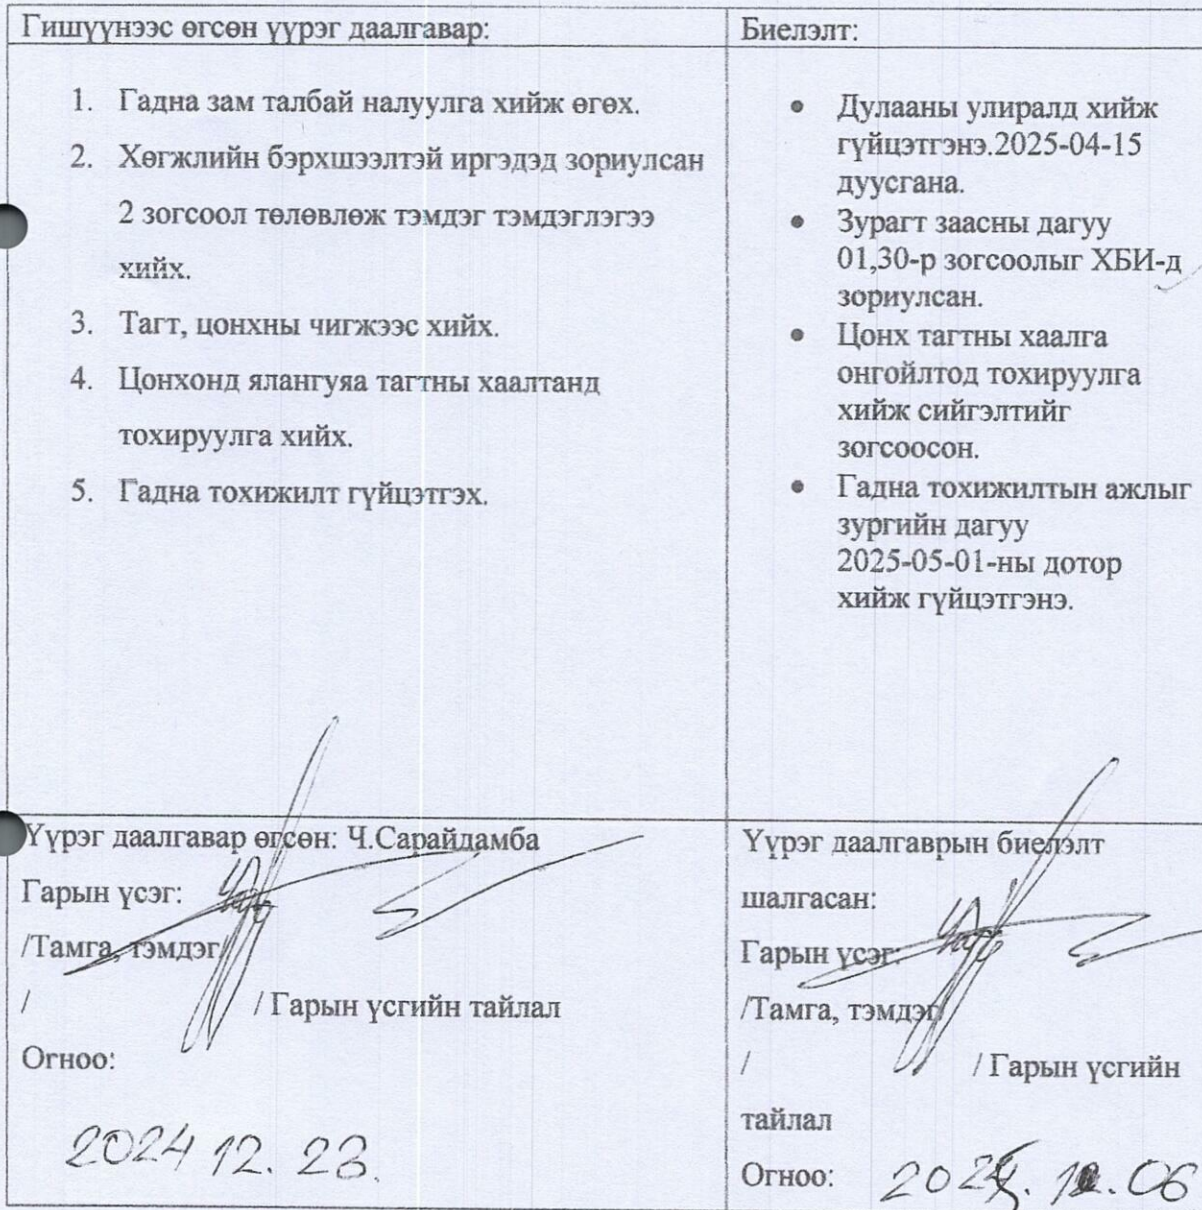 Гишүүнээс өгсөн үүрэг даалгавар:
1. Гадна зам талбай налуулга хийж өгөх.
2. Хөгжлийн бэрхшээлтэй иргэдэд зориулсан
2 зогсоол төлөвлөж тэмдэг тэмдэглэгээ
хийх.
3. Тагт, цонхны чигжээс хийх.
4. Цонхонд ялангуяа тагтны хаалтанд
тохируулга хийх.
5. Гадна тохижилт гүйцэтгэх.
Биелэлт:
• Дулааны улиралд хийж
гүйцэтгэнэ.2025-04-15
дуусгана.
• Зурагт заасны дагуу
01,30-р зогсоолыг ХБИ-д
зориулсан.
• Цонх тагтны хаалга
онгойлтод тохируулга
хийж сийгэлтийг
зогсоосон.
• Гадна тохижилтын ажлыг
зургийн дагуу
2025-05-01-ны дотор
хийж гүйцэтгэнэ.
Үүрэг даалгавар өгсөн: Ч.Сарайдамба
Гарын үсэг:
/Тамга, тэмдэг/
/ / Гарын үсгийн тайлал
Огноо:
2024 12. 23.
Үүрэг даалгаврын биелэлт
шалгасан:
Гарын үсэг:
/Тамга, тэмдэг/
/ / Гарын үсгийн
тайлал
Огноо: 06